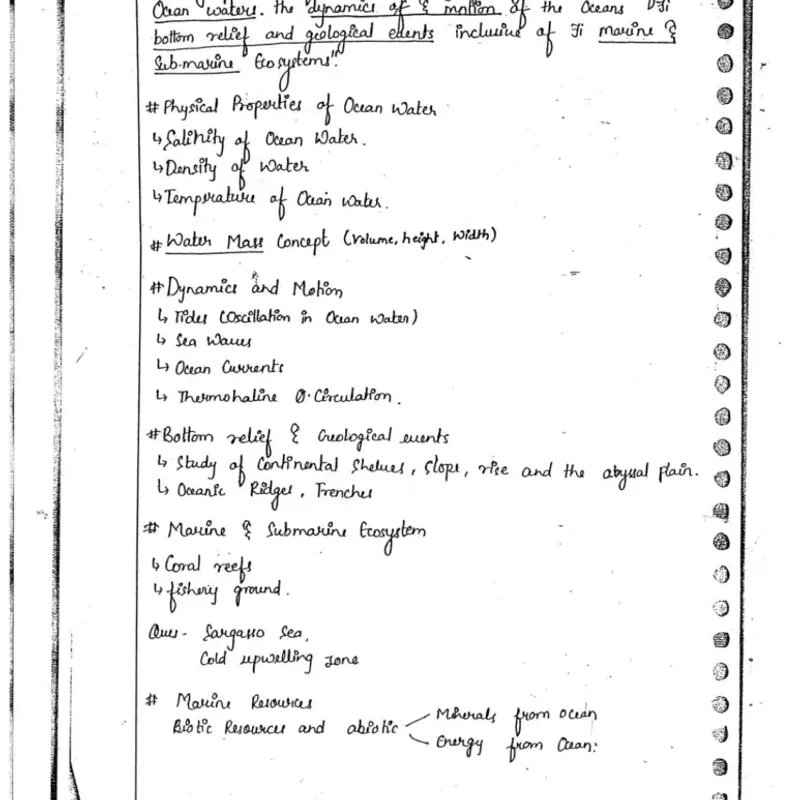 Ocean waters. The dynamics of & motion of the Oceans Ti
bottom relief and geological events inclusive of Ti marine &
Sub-marine Ecosystems".
# Physical Properties of Ocean Water
↳ Salinity of Ocean Water.
↳ Density of Water
↳ Temperature of Ocean Water.
# Water Mass Concept (Volume, height, Width)
# Dynamics and Motion
↳ Tides (Oscillation in Ocean Water)
↳ Sea Waves
↳ Ocean Currents
↳ Thermohaline O. Circulation.
# Bottom relief & Geological events
↳ Study of Continental Shelves, Slope, rise and the abyssal plain.
↳ Oceanic Ridges, Trenches
# Marine & Submarine Ecosystem
↳ Coral reefs
↳ fishery ground.
Ques - Sargasso Sea,
Cold upwelling zone
# Marine Resources
Biotic Resources and abiotic
Minerals from ocean
Energy from Ocean: